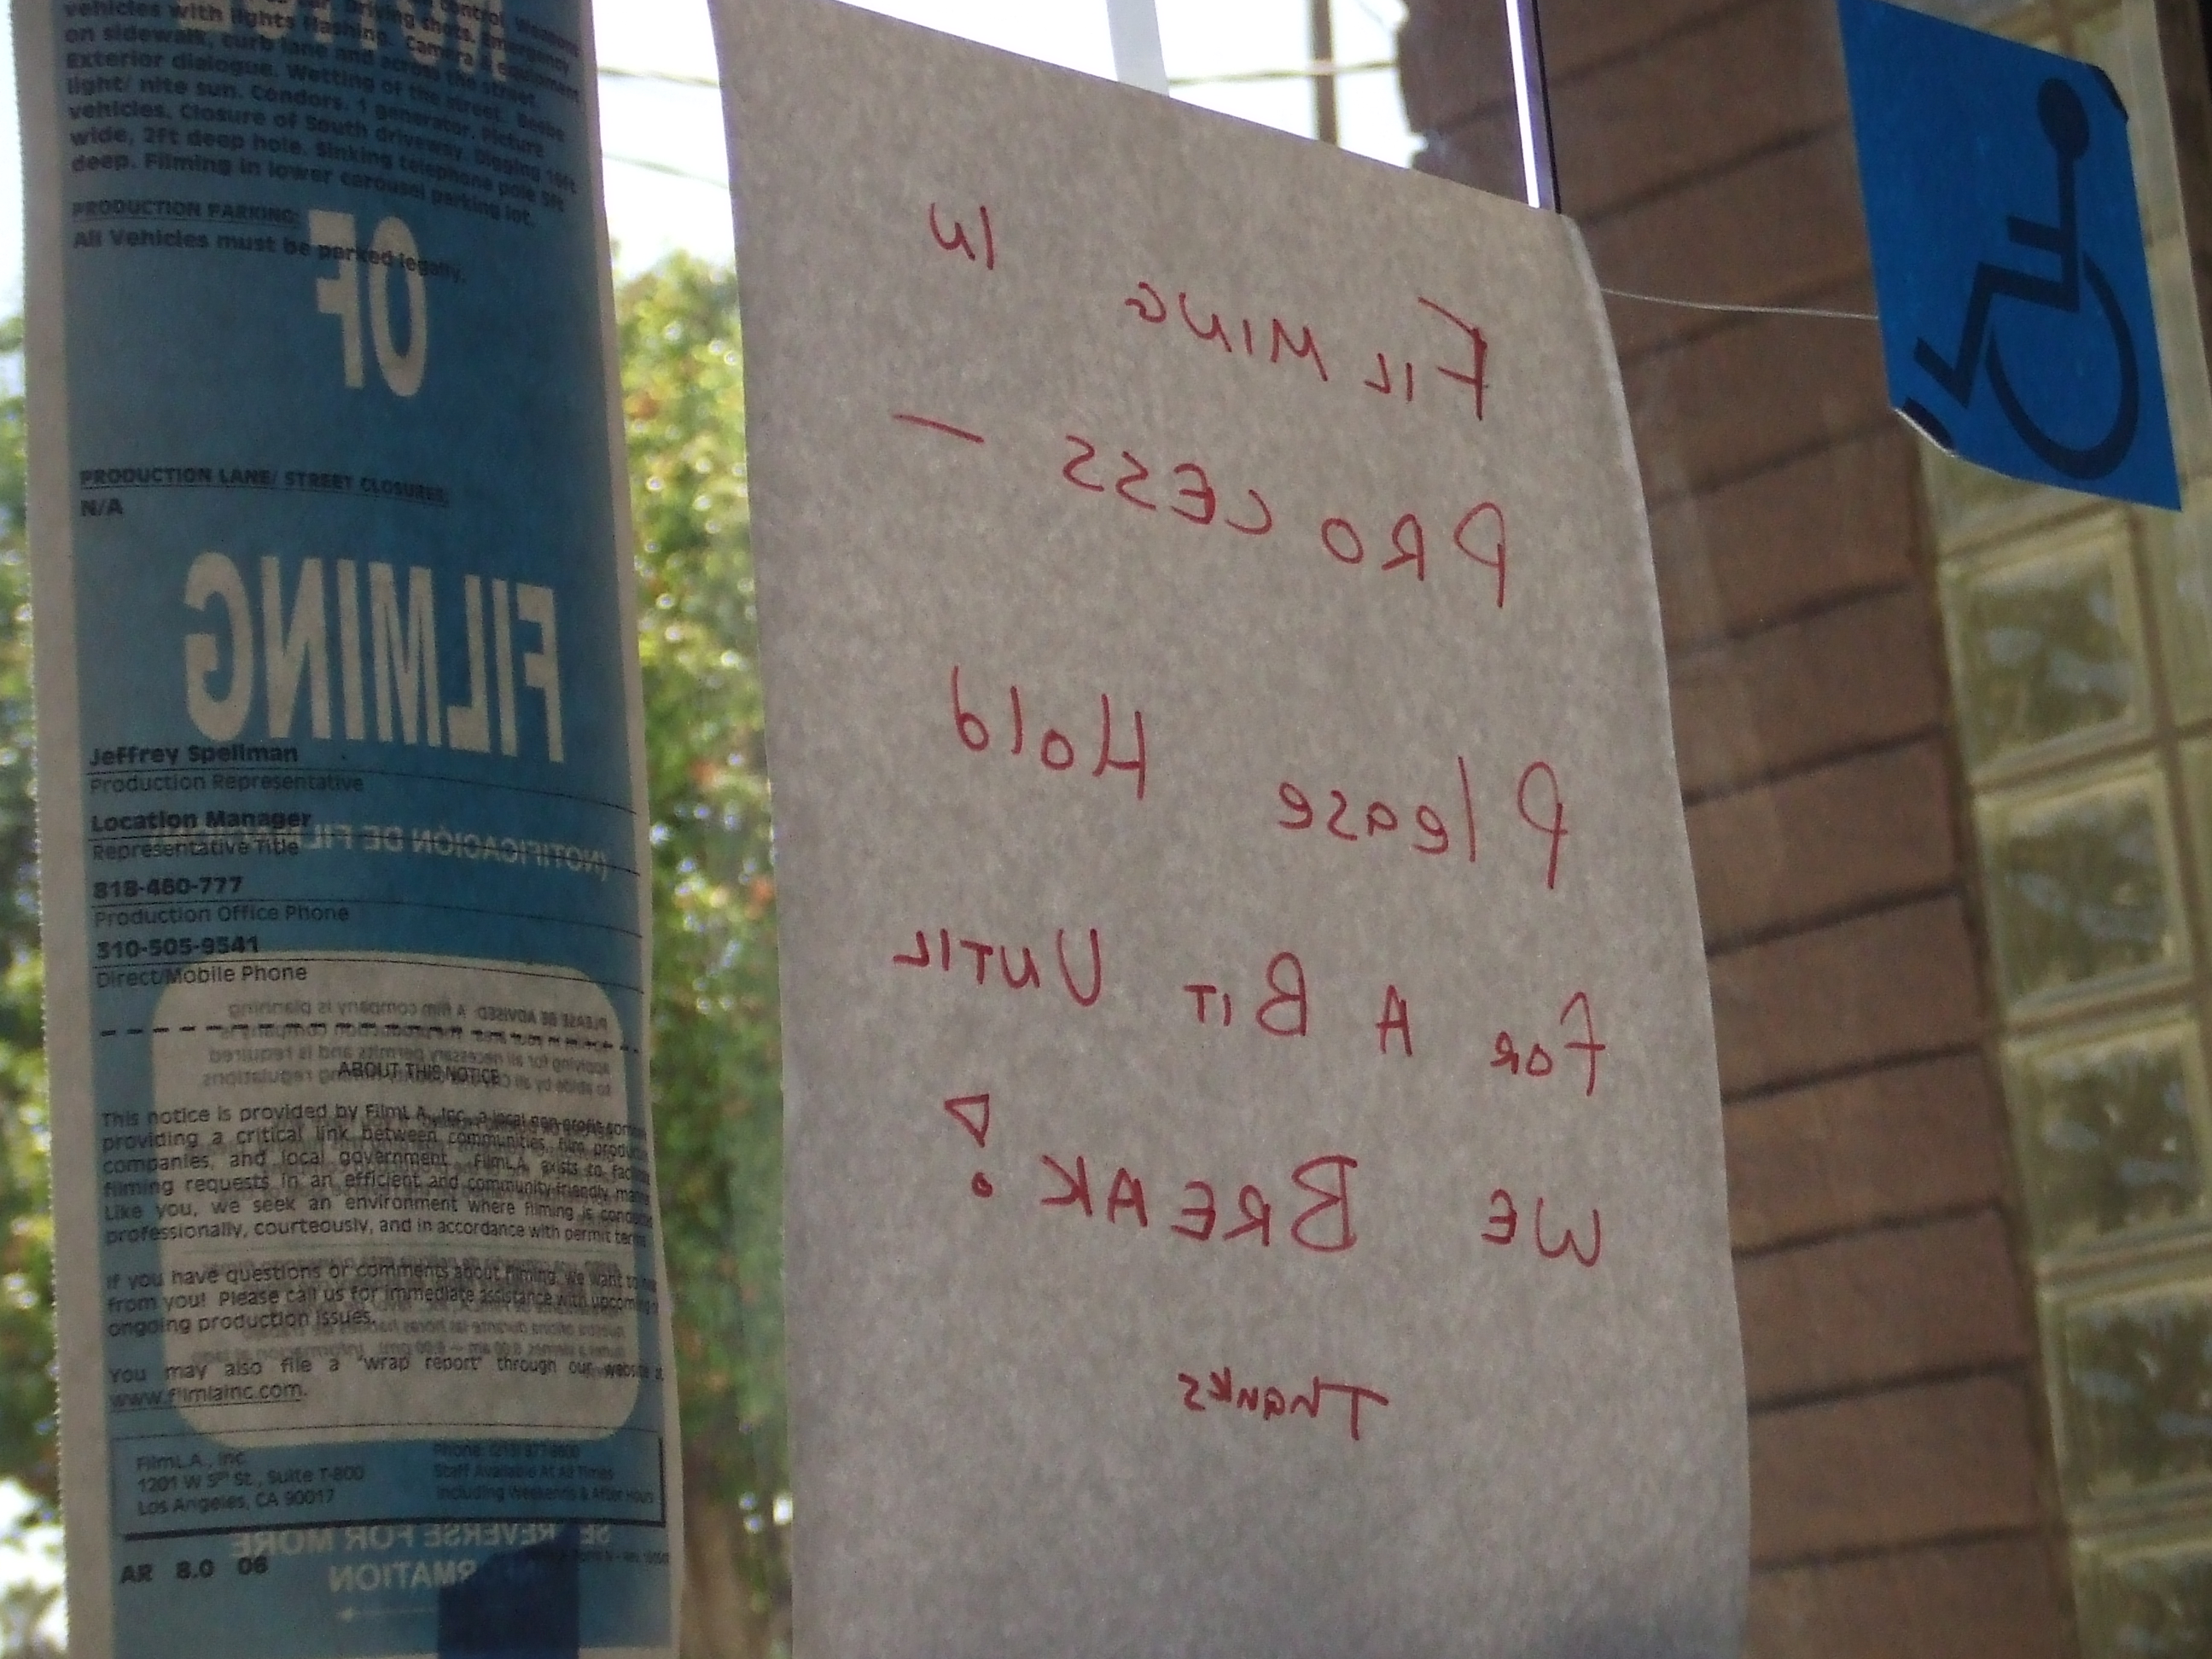 vehicles with lights flashing. Camera & equipment
on sidewalk, curb lane and across the street.
Exterior dialogue. Wetting of the street.
light/ nite sun. Condors. 1 generator. Picture
vehicles. Closure of South driveway. Digging
wide, 2ft deep hole. Sinking telephone pole 5ft
deep. Filming in lower carousel parking lot.
PRODUCTION PARKING:
All Vehicles must be parked legally.
OF
PRODUCTION LANE/ STREET CLOSURES:
N/A
FILMING
Jeffrey Spellman
Production Representative
Location Manager
Representative Title
(NOTIFICACIÓN DE
818-460-777
Production Office Phone
310-505-9541
Direct/Mobile Phone
PLEASE BE ADVISED: A film company is planning
applying for all necessary permits and is required
to abide by all
regulations
ABOUT THIS NOTICE
This notice is provided by FilmL.A., Inc., a local non-profit
providing a critical link between communities, film
companies, and local government. FilmL.A. exists to
filming requests in an efficient and community-friendly
Like you, we seek an environment where filming is
professionally, courteously, and in accordance with permit
If you have questions or comments about filming, we want to
from you! Please call us for immediate assistance with upcoming
ongoing production issues.
You may also file a "wrap report" through our website
www.filmlainc.com.
FilmL.A., Inc.
1201 W 5th St., Suite T-800
Los Angeles, CA 90017
Staff Available At All Times
Including Weekends & After Hours
REVERSE FOR MORE
AR 8.0 06
FILMING IN
PROCESS —
Please Hold
For A Bit Until
WE BREAK!
Thanks